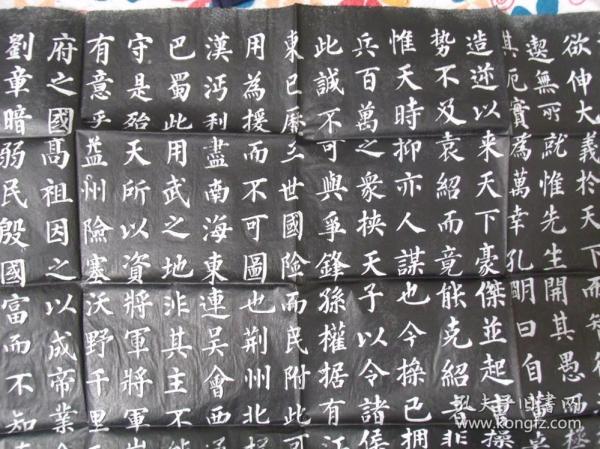 欲伸大義於天下而智
無所就惟先生開其愚而拯
其厄實為萬幸孔明曰自董卓
造逆以來天下豪傑並起曹操
势不及袁紹而竟能克紹者非
惟天時抑亦人謀也今操已拥
兵百萬之衆挾天子以令諸侯
此誠不可與爭鋒孫權据有江
東已歷三世國險而民附此可
用為援而不可圖也荆州北
漢沔利盡南海東連吳會西
巴蜀此用武之地非其主不能
守是殆天所以資將軍將軍豈
有意乎益州險塞沃野千里
府之國高祖因之以成帝業
劉章暗弱民殷國富而不知
孔夫子旧书网
kongfz.com